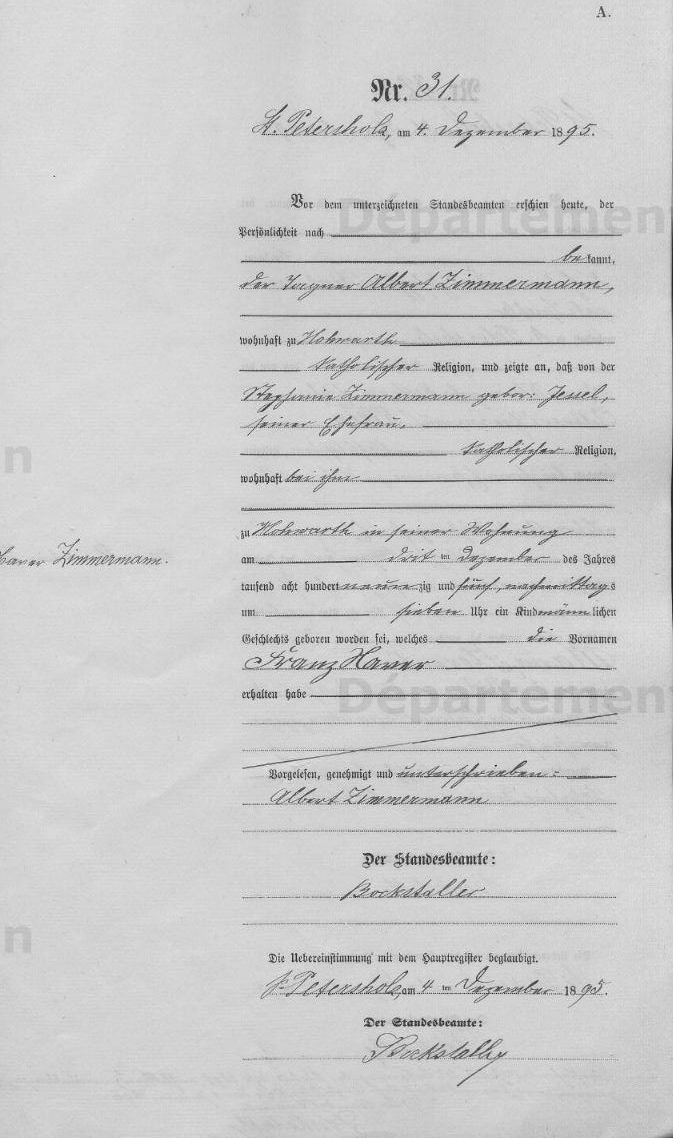 A.
Nr. 31.
St. Petersholz, am 4. Dezember 1895.
Vor dem unterzeichneten Standesbeamten erschien heute, der
Persönlichkeit nach
bekannt,
der Tagner Albert Zimmermann,
wohnhaft zu Hohwarth
katholischer Religion, und zeigte an, daß von der
Stephanie Zimmermann gebor: Jessel,
seiner Ehefrau,
katholischer Religion,
wohnhaft bei ihm
zu Hohwarth in seiner Wohnung
am drit ten Dezember des Jahres
tausend acht hundert neunzig und fünf, nachmittags
um sieben Uhr ein Kind männlichen
Geschlechts geboren worden sei, welches die Vornamen
Franz Xaver
erhalten habe
Xaver Zimmermann.
Vorgelesen, genehmigt und unterschrieben:
Albert Zimmermann
Der Standesbeamte:
Bockstaller
Die Uebereinstimmung mit dem Hauptregister beglaubigt.
St. Petersholz, am 4 ten Dezember 1895.
Der Standesbeamte:
Bockstaller
Département
Département
n
n